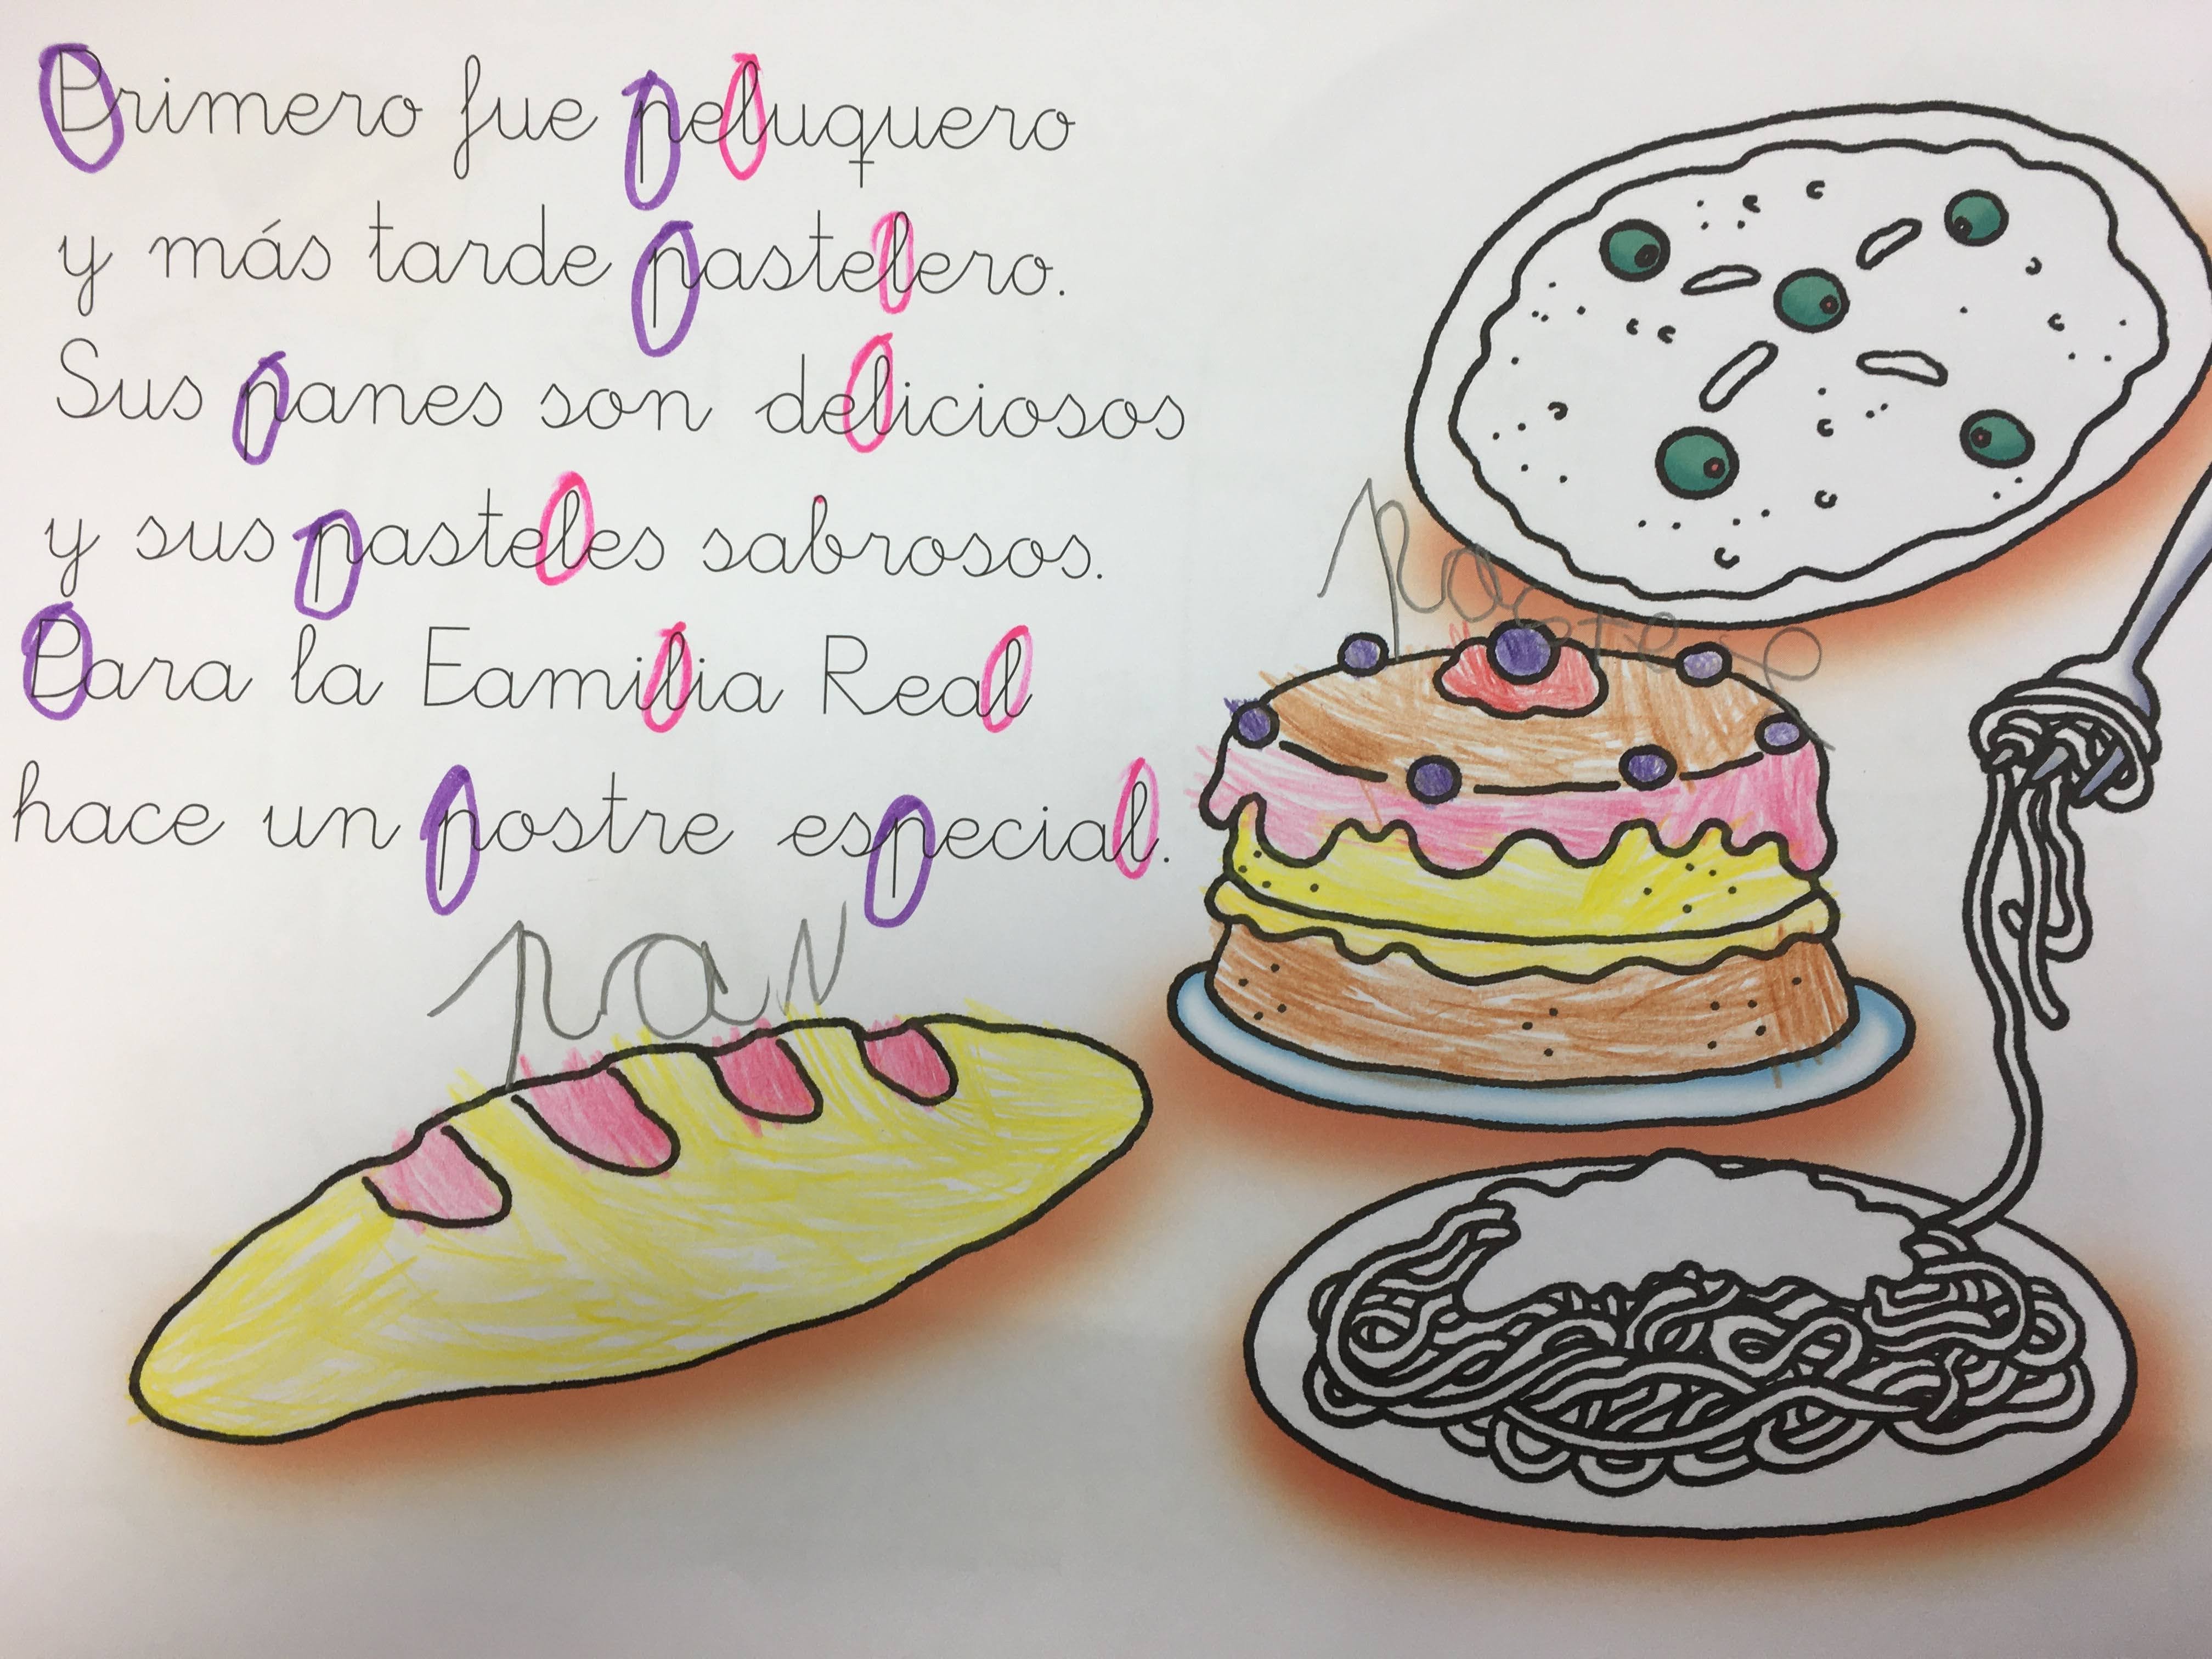 Primero fue peluquero
y más tarde pastelero.
Sus panes son deliciosos
y sus pasteles sabrosos.
Para la Familia Real
hace un postre especial.
pan